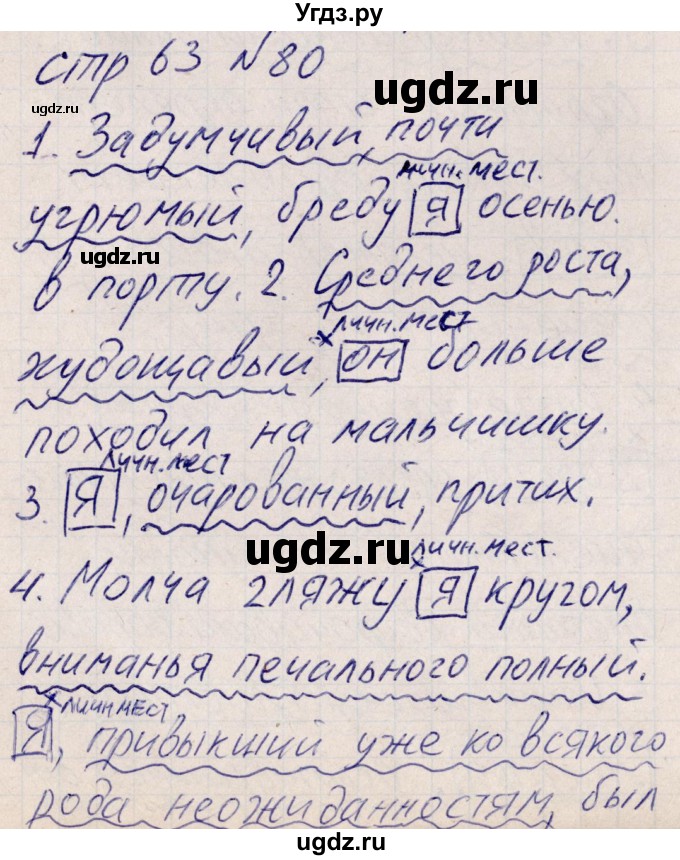 Угдз.ру
стр 63 №80
ugdz.ru
ugdz.ru
1. Задумчивый, почти
личн. мест.
угрюмый, бреду я осенью.
ugdz.ru
в порту. 2. Среднего роста,
личн. мест
худощавый, он больше
походил на мальчишку.
личн. мест
3. Я, очарованный, притих.
ugdz.ru
личн. мест.
4. Молча гляжу я кругом,
вниманья печального полный.
личн мест
Я, привыкший уже ко всякого
рода неожиданностям, был
ugdz.ru